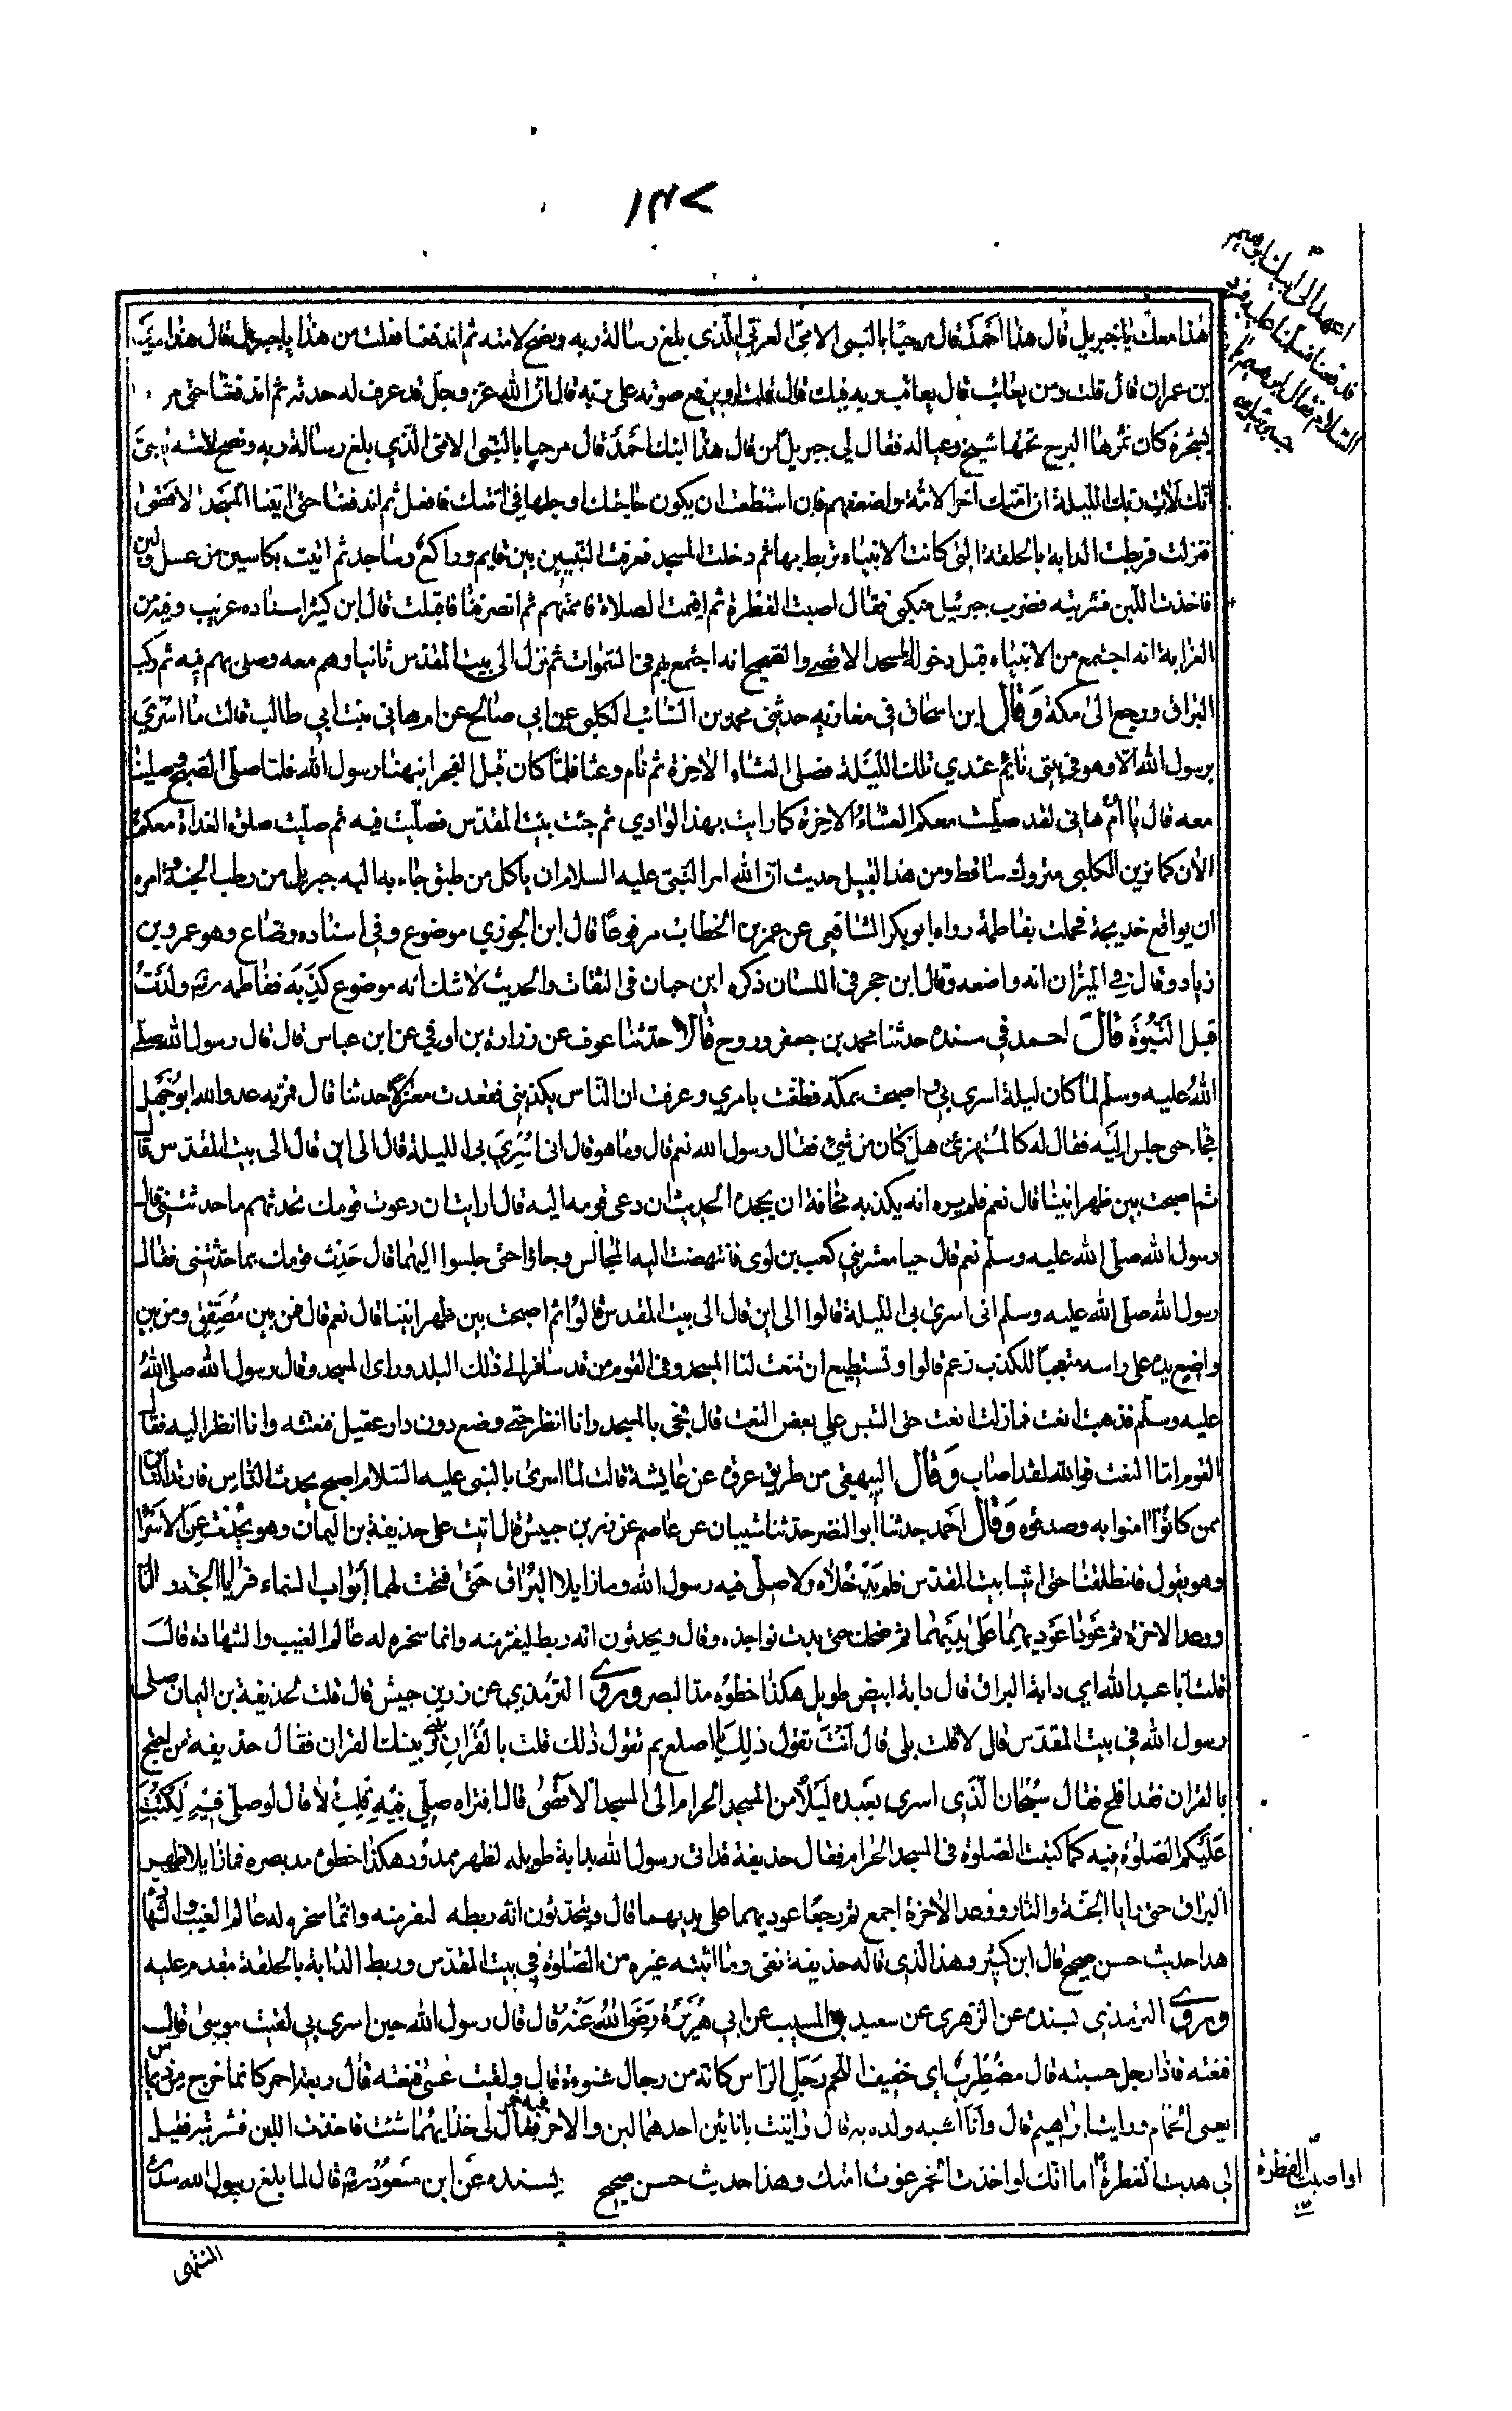 ١٣٧
هذا معك يا جبريل قال هذا احمد قال مرحبا بالنبي الامي العربي الذي بلغ رسالة ربه ونصح لامته ثم اندفعنا فقلت من هذا يا جبريل قال هذا موسى
بن عمران قال قلت ومن يعاتب قال يعاتب ربه فيك قال قلت او يرفع صوته على ربه قال ان الله عز وجل قد عرف له حدته ثم اندفعنا حتى مر
بشجرة كان ثمرها السرح تحتها شيخ وعياله فقال لي جبريل من قال هذا ابنك احمد قال مرحبا بالنبي الامي الذي بلغ رسالة ربه ونصح لامته يا بني
انك لاق ربك الليلة ان امتك آخر الامة واضعفهم فان استطعت ان يكون حاجتك او جلها في امتك فافعل ثم اندفعنا حتى اتينا المسجد الاقصى
فنزلت فربطت الدابة بالحلقة التي كانت الانبياء تربط بها ثم دخلت المسجد فعرفت النبيين بين قايم وراكع وساجد ثم اتيت بكاسين من عسل ولبن
فاخذت اللبن فشربته فضرب جبرئيل منكبي فقال اصبت الفطرة ثم اقيمت الصلاة فاممتهم ثم انصرفنا فاقبلت قال ابن كثير اسناده غريب وفيه من
الغرابة انه اجتمع من الانبياء قبل دخوله المسجد الاقصى والصحيح انه اجتمع بهم في السموات ثم نزل الى بيت المقدس ثانيا وهم معه وصلى بهم فيه ثم ركب
البراق ورجع الى مكة وقال ابن اسحاق في مغازيه حدثني محمد بن السائب الكلبي عن ابي صالح عن ام هاني بنت ابي طالب قالت ما اسري
برسول الله الا وهو في بيتي نايم عندي تلك الليلة فصلى العشاء الاخرة ثم نام ونمنا فلما كان قبل الفجر انبهنا رسول الله فلما صلى الصبح وصلينا
معه قال يا ام هاني لقد صليت معكم العشاء الاخرة كما رايت بهذا الوادي ثم جئت بيت المقدس فصليت فيه ثم صليت صلوة الغداة معكم
الآن كما ترين الكلبي متروك ساقط ومن هذا القبيل حديث ان الله امر النبي عليه السلام ان ياكل من طبق جاء به اليه جبريل من رطب الجنة وامره
ان يواقع خديجة فحملت بفاطمة رواه ابو بكر الشافعي عن عمر بن الخطاب مرفوعا قال ابن الجوزي موضوع وفي اسناده وضاع وهو عمرو بن
زياد وقال في الميزان انه واضعه وقال ابن حجر في اللسان ذكره ابن حبان في الثقات والحديث لا شك انه موضوع كذبه ففاطمه رض ولدت
قبل النبوة قال احمد في مسنده حدثنا محمد بن جعفر وروح قالا حدثنا عوف عن زرارة بن اوفي عن ابن عباس قال قال رسول الله صلى
الله عليه وسلم لما كان ليلة اسري بي واصبحت بمكة فظعت بامري وعرفت ان الناس يكذبني فقعدت معتزلا حدثنا قال فمر به عدو الله ابو جهل
فجاء حى جلس اليه فقال له كالمستهزئ هل كان من شيئ فقال رسول الله نعم قال وما هو قال اني اسري بي الليلة قال الى اين قال الى بيت المقدس قال
ثم اصبحت بين ظهرانينا قال نعم فلم يره انه يكذبه مخافة ان يجحده الحديث ان دعى قومه اليه قال ارايت ان دعوت قومك تحدثهم ما حدثتني قال
رسول الله صلى الله عليه وسلم نعم قال حيا معشر بني كعب بن لوى فانتهضت اليه المجالس وجاؤا حتى جلسوا اليهما قال حدث قومك بما حدثتني فقال
رسول الله صلى الله عليه وسلم اني اسرى بي الليلة قالوا الى اين قال الى بيت المقدس قالوا ثم اصبحت بين ظهرانينا قال نعم قال فمن بين مصفق ومن بين
واضع يده على راسه متعجبا للكذب زعم قالوا وتستطيع ان تنعت لنا المسجد وفي القوم من قد سافر الى ذلك البلد وراى المسجد وقال رسول الله صلى الله
عليه وسلم فذهبت انعت فما زلت انعت حتى التبس علي بعض النعت قال فجئ بالمسجد وانا انظر حتى وضع دون دار عقيل فنعته وانا انظر اليه فقال
القوم اما النعت فوالله لقد اصاب وقال البيهقي من طريق عروة عن عايشة قالت لما اسرى بالنبي عليه السلام اصبح يحدث الناس فارتد الناس
ممن كانوا آمنوا به وصدقوه وقال احمد حدثنا ابو النضر حدثنا شيبان عن عاصم عن زر بن حبيش قال اتيت على حذيفة بن اليمان وهو يحدث عن الاسرا
وهو يقول فانطلقنا حتى اتينا بيت المقدس فلم يدخلاه ولا صلى فيه رسول الله وما زايلا البراق حتى فتحت لهما ابواب السماء فرايا الجنة والنار
ووعد الاخرة ثم عودا عوديهما على بديهما ثم ضحك حتى بدت نواجذه وقال ويحدثون انه ربط ليفر منه وانما سخره له عالم الغيب والشهادة قال
قلت ابا عبد الله اي دابة البراق قال دابة ابيض طويل هكذا خطوه مد البصر وروى الترمذي عن زر بن حبيش قال قلت لحذيفة بن اليمان صلى
رسول الله في بيت المقدس قال لا قلت بلى قال انت تقول ذلك يا اصلع بم تقول ذلك قلت بالقران بيني وبينك القران فقال حذيفه من احتج
بالقران فقد افلح فقال سبحان الذي اسرى بعبده ليلا من المسجد الحرام الى المسجد الاقصى قال افتراه صلى فيه قلت لا قال لو صلى فيه لكتبت
عليكم الصلوة فيه كما كتبت الصلوة في المسجد الحرام فقال حذيفة قد اتى رسول الله بدابة طويله الظهر ممدود هكذا خطوه مد بصره فما زايلا ظهر
البراق حتى رايا الجنة والنار ووعد الاخرة اجمع ثم رجعا عوديهما على بديهما قال ويتحدثون انه ربطه ليفر منه وانما سخره له عالم الغيب والشهادة
هذا حديث حسن صحيح قال ابن كثير وهذا الذي قاله حذيفة نفى وما اثبته غيره من الصلوة في بيت المقدس وربط الدابة بالحلقة مقدم عليه
وروى الترمذي بسنده عن الزهري عن سعيد بن المسيب عن ابي هريرة رضى الله عنه قال قال رسول الله حين اسري بي لقيت موسى قال
فنعته فاذا رجل حسبته قال مضطرب اي خفيف اللحم رجل الراس كانه من رجال شنوءة قال ولقيت عيسى فنعته قال ربعة احمر كانما خرج من ديماس
يعني الحمام ورايت ابراهيم قال وانا اشبه ولده به قال واتيت بانائين احدهما لبن والاخر فيه خمر فقال لي خذ ايهما شئت فاخذت اللبن فشربته فقيل
لي هديت الفطرة اما انك لو اخذت الخمر غوت امتك وهذا حديث حسن صحيح بسنده عن ابن مسعود رض قال لما بلغ رسول الله سدرة
المنتهى
اعهد الى ابيك ابراهيم
فدفعنا فسلمنا عليه فرد
السلام فقال ابراهيم يا
جبريل
او اصبت الفطرة